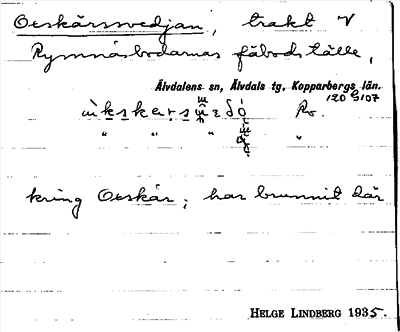 Oxskärssvedjan, trakt V
Rymnäsbodarnas fäbodställe,
Älvdalens sn, Älvdals tg, Kopparbergs län.
120 G107
Ro.
" " "
kring Oxskär; har brunnit där
HELGE LINDBERG 1935.